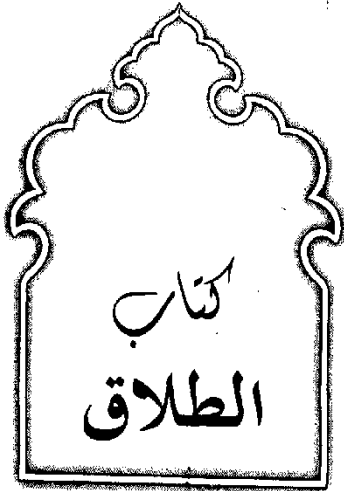 كتاب
الطلاق